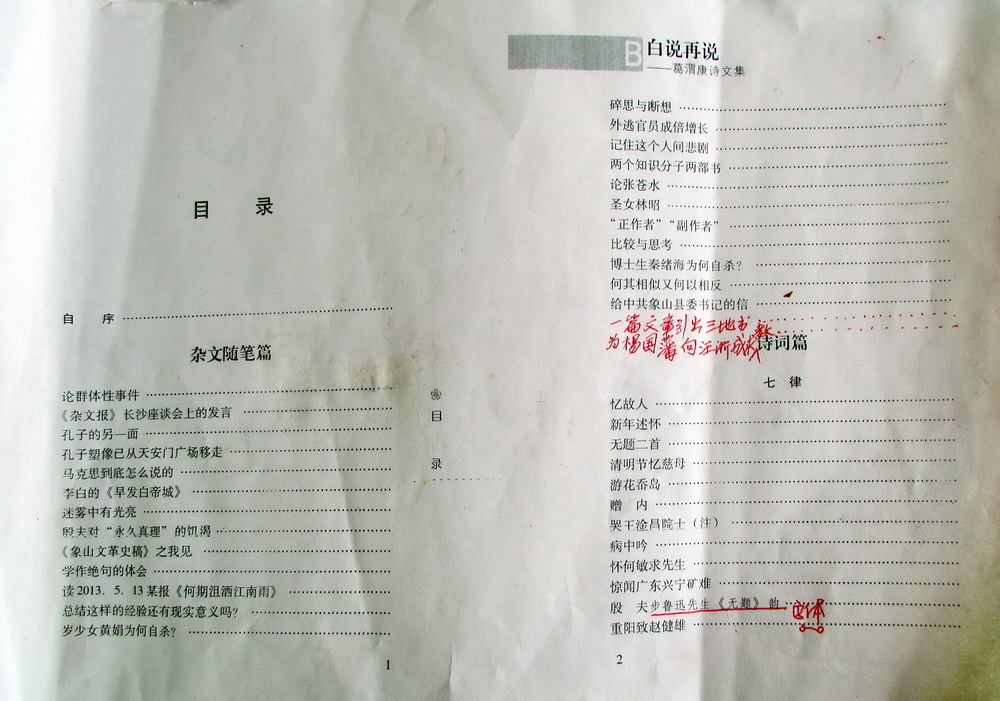 目 录
自 序
杂文随笔篇
论群体性事件
《杂文报》长沙座谈会上的发言
孔子的另一面
孔子塑像已从天安门广场移走
马克思到底怎么说的
李白的《早发白帝城》
迷雾中有光亮
殷夫对“永久真理”的饥渴
《象山文革史稿》之我见
学作绝句的体会
读 2013．5．13 某报《何期泪洒江南雨》
总结这样的经验还有现实意义吗？
岁少女黄娟为何自杀？
1
目
录
B 白说再说
——葛渭康诗文集
碎思与断想
外逃官员成倍增长
记住这个人间悲剧
两个知识分子两部书
论张苍水
圣女林昭
“正作者”“副作者”
比较与思考
博士生秦绪海为何自杀？
何其相似又何以相反
给中共象山县委书记的信
一篇文章引出三地书
为杨国藩向汪浙成
诗词篇
七 律
忆故人
新年述怀
无题二首
清明节忆慈母
游花岙岛
赠 内
哭王淦昌院士（注）
病中吟
怀何敏求先生
惊闻广东兴宁矿难
殷 夫 步鲁迅先生《无题》韵
重阳致赵健雄
2